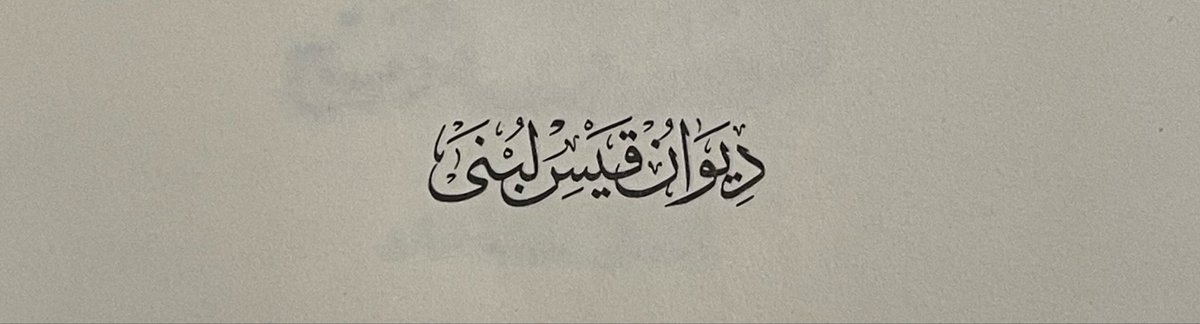 دِيوَانُ قَيْسِ لُبْنَى